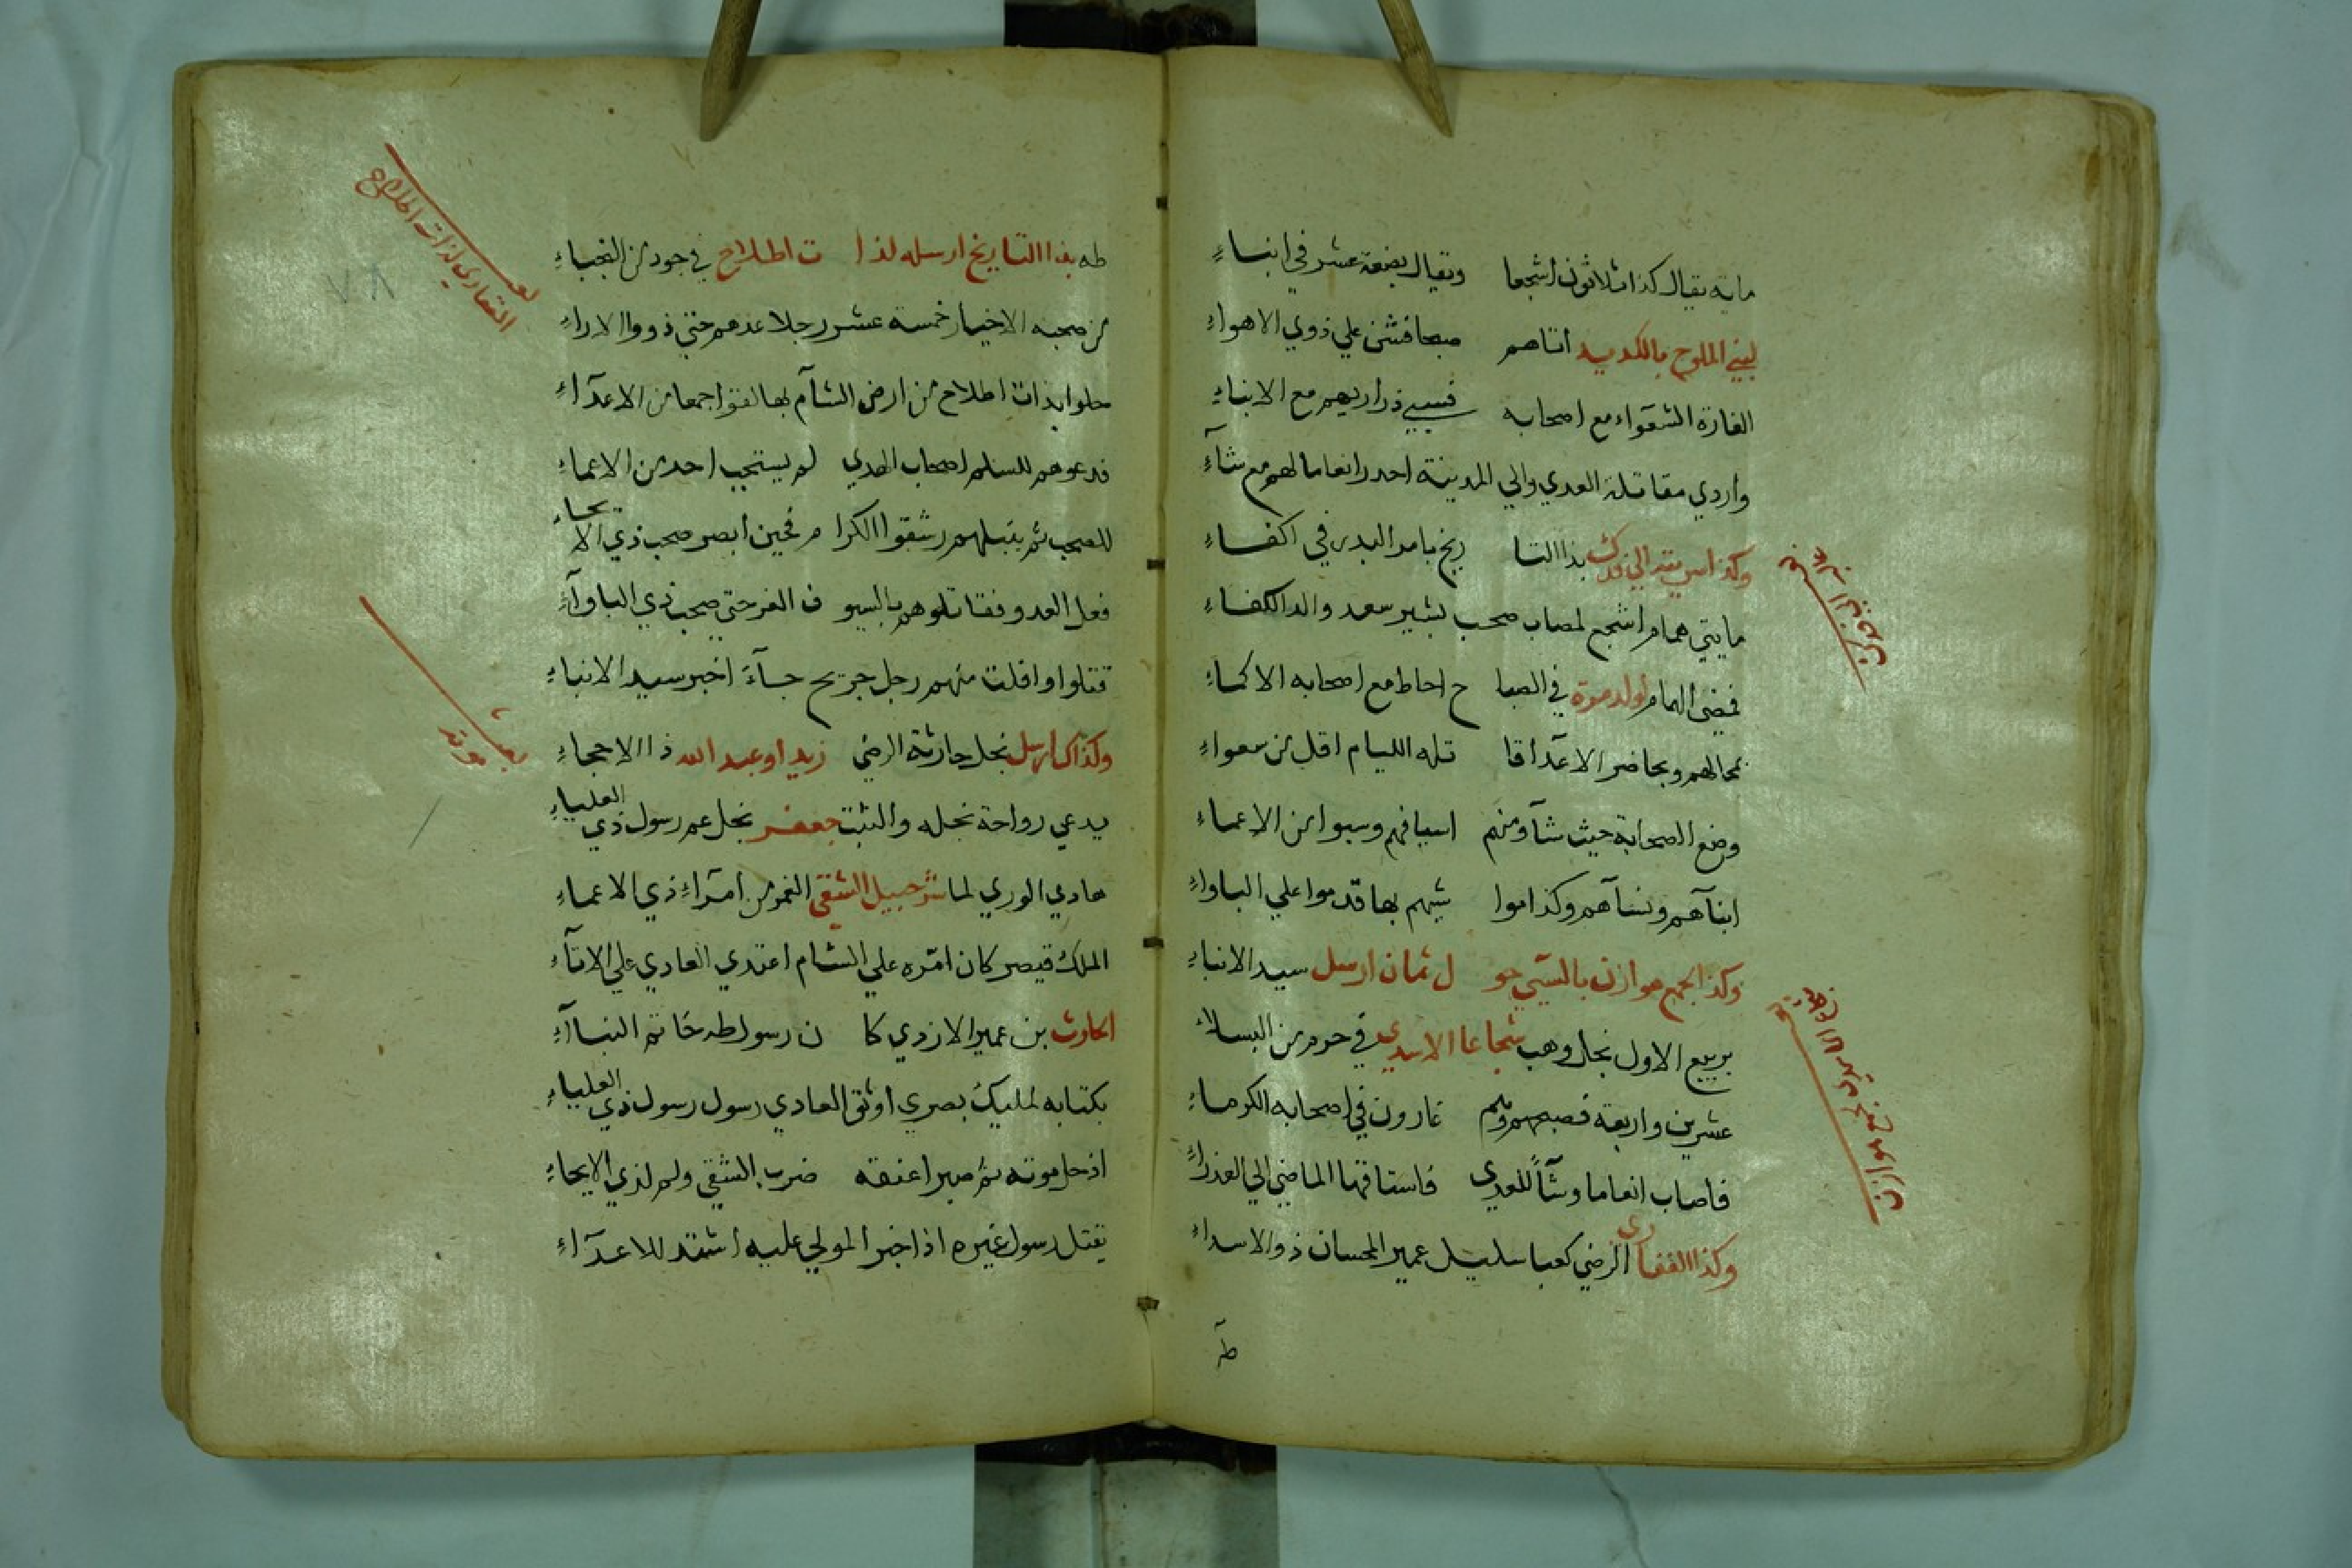 ماية يقال كذا ثلاثون اشجعا ويقال بضعة عشر في انباءِ
لبني الملوح بالكديد اتاهم صبحا فشن علي ذوي الاهواءِ
الغارة الشعوآء مع اصحابه فسبي ذراريهم مع الابناءِ
واردي مقاتلة العدي والي المدينة احدر انعاما لهم مع شآءِ
وكذا سريته الي فدك بذا التا ريخ بامر البدر في اكفاءِ
مايتي همام اشجع لمصاب صحب بشير سعد والد الكفاءِ
فمضي الهمام اولد مرة في الصبا ح احاط مع اصحابه الاكماءِ
بمحالهم وبحاضر الاعدآ قا تله الليام اقل من معواءِ
وضع الصحابة حيث شآ ومنهم اسيافهم وسبوا من الاعماءِ
ابنآهم ونسآهم وكذا موا شيهم بها قدموا علي الباواءِ
وكذا لجمع هوازن بالسيّ حو ل ثمان ارسل سيد الانباءِ
بربيع الاول نجل وهب شجاعا الاسدي في حوم من البسلاءِ
عشرين واربعة فصبحهم وهم غارون في اصحابه الكرماءِ
فاصاب انعاما وشآً للعدي فاستاقها الماضي الي العذراءِ
وكذا الغفاري الرضي كعبا سليل عمير المحسان ذو الاسداءِ
طه
طه بذا التاريخ ارسله لذا ت اطلاح في جود من النجباءِ
من صحبه الاخيار خمسة عشر رجلا عدهم حتي ذووا الاراءِ
حلوا بذات اطلاح من ارض الشآم بها لقوا جمعا من الاعدآءِ
فدعوهم للسلم اصحاب الهدي لم يستجب احد من الاعماءِ
للصحب ثم بنبلهم رشقوا الكرا م فحين ابصر صحب ذي الايحاءِ
فعل العدو فقاتلوهم بالسيو ف الغر حتي صحب ذي الباوآءِ
قتلوا وافلت منهم رجل جريح جآءَ اخبر سيد الانباءِ
وكذاك ارسل نجل حارثة الرضي زيد او عبد الله ذا الاحجاءِ
يدعي رواحة نجله والثبت جعفر نجل عم رسول ذي العلياءِ
هادي الوري لما شرحبيل الشقي الغمر من امرآءِ ذي الاعماءِ
الملك قيصر كان امّره علي الشام اعتدي العادي علي الاتآءِ
الحارث بن عمير الازدي كا ن رسول طه خاتم النبآءِ
بكتابه لمليك بصري اوثق العادي رسول رسول ذي العلياءِ
اذ حل موته ثم صبرا عنقه ضرب الشقي ولم لذي الايحاءِ
يقتل رسول غيره اذ اخبر المولي عليه اشتد للاعدآءِ
الغفاري لذات اطلاح